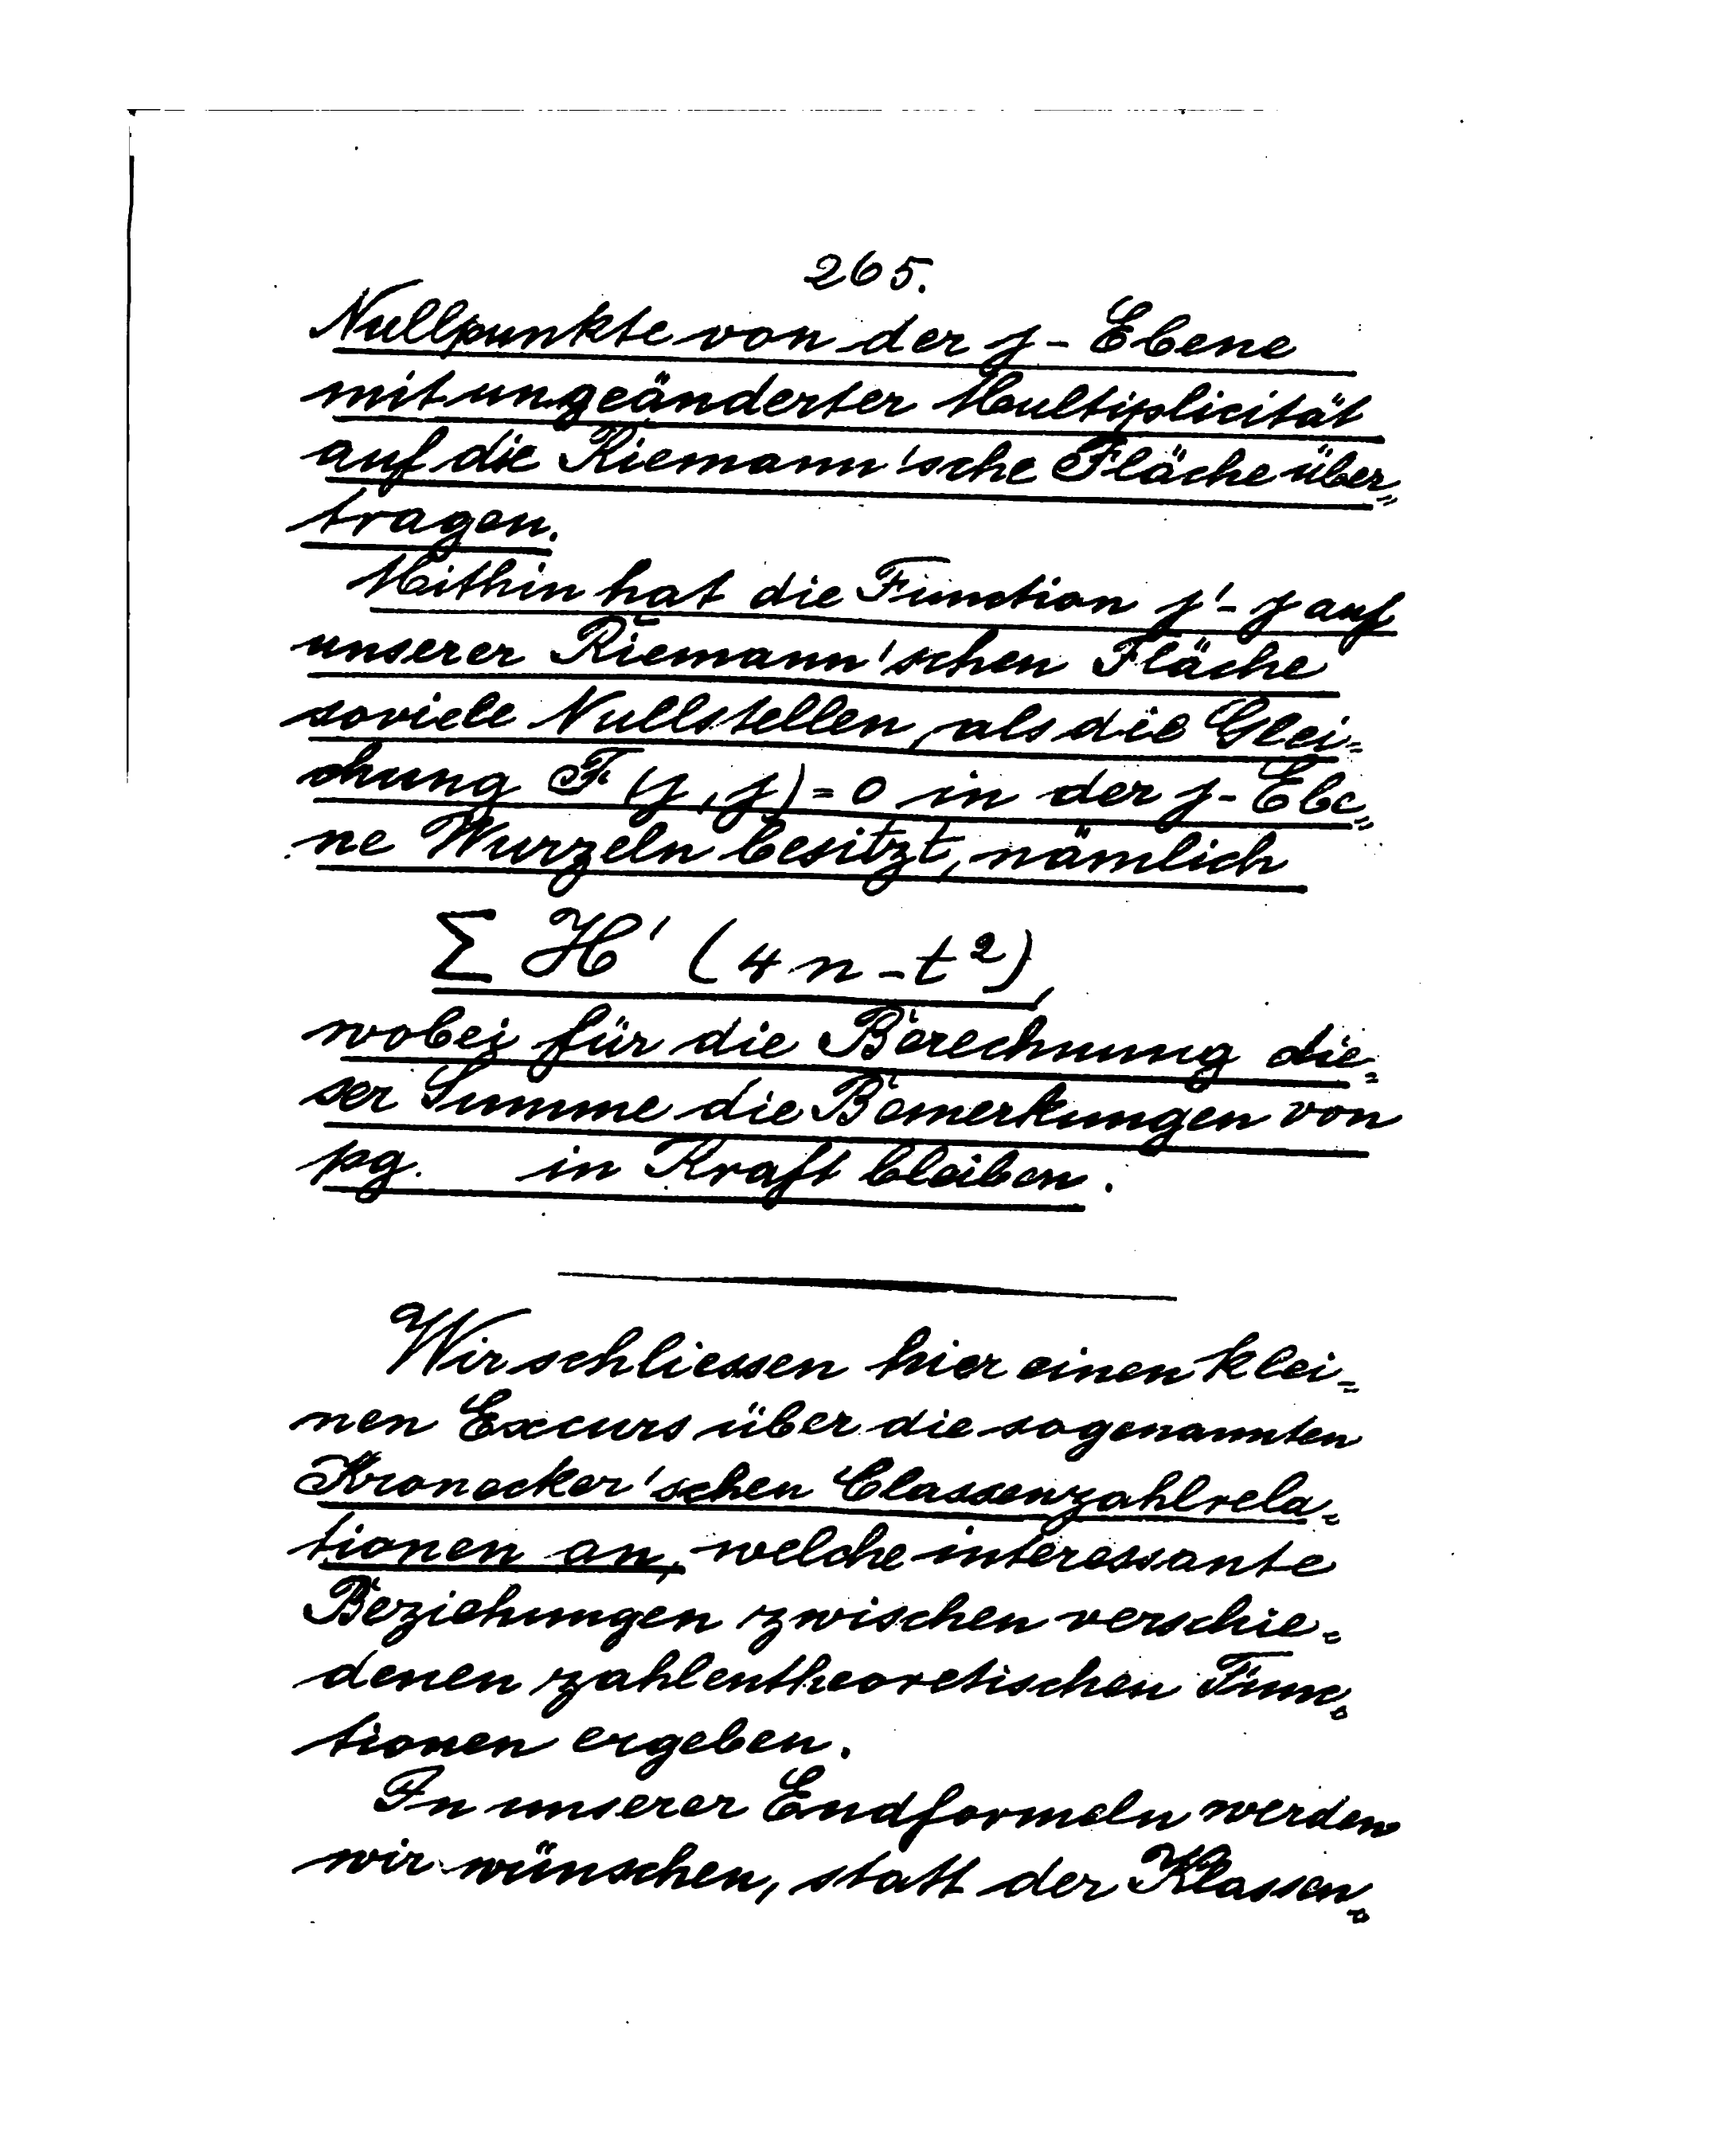 265.
Nullpunkte von der j-Ebene
mit ungeänderter Multiplicität
auf die Riemann'sche Fläche über=
tragen.
Mithin hat die Function j'-j auf
unserer Riemann'schen Fläche
soviele Nullstellen, als die Glei=
chung F(j, j) = 0 in der j-Ebe=
ne Wurzeln besitzt, nämlich
Σ H' (4n - t²),
wobei für die Berechnung die=
ser Summe die Bemerkungen von
pg. in Kraft bleiben.
Wir schliessen hier einen klei=
nen Excurs über die sogenannten
Kronecker'schen Classenzahlrela=
tionen an, welche interessante
Beziehungen zwischen verschie=
denen zahlentheoretischen Func=
tionen ergeben.
In unserer Endformeln werden
wir wünschen, statt der Klassen=